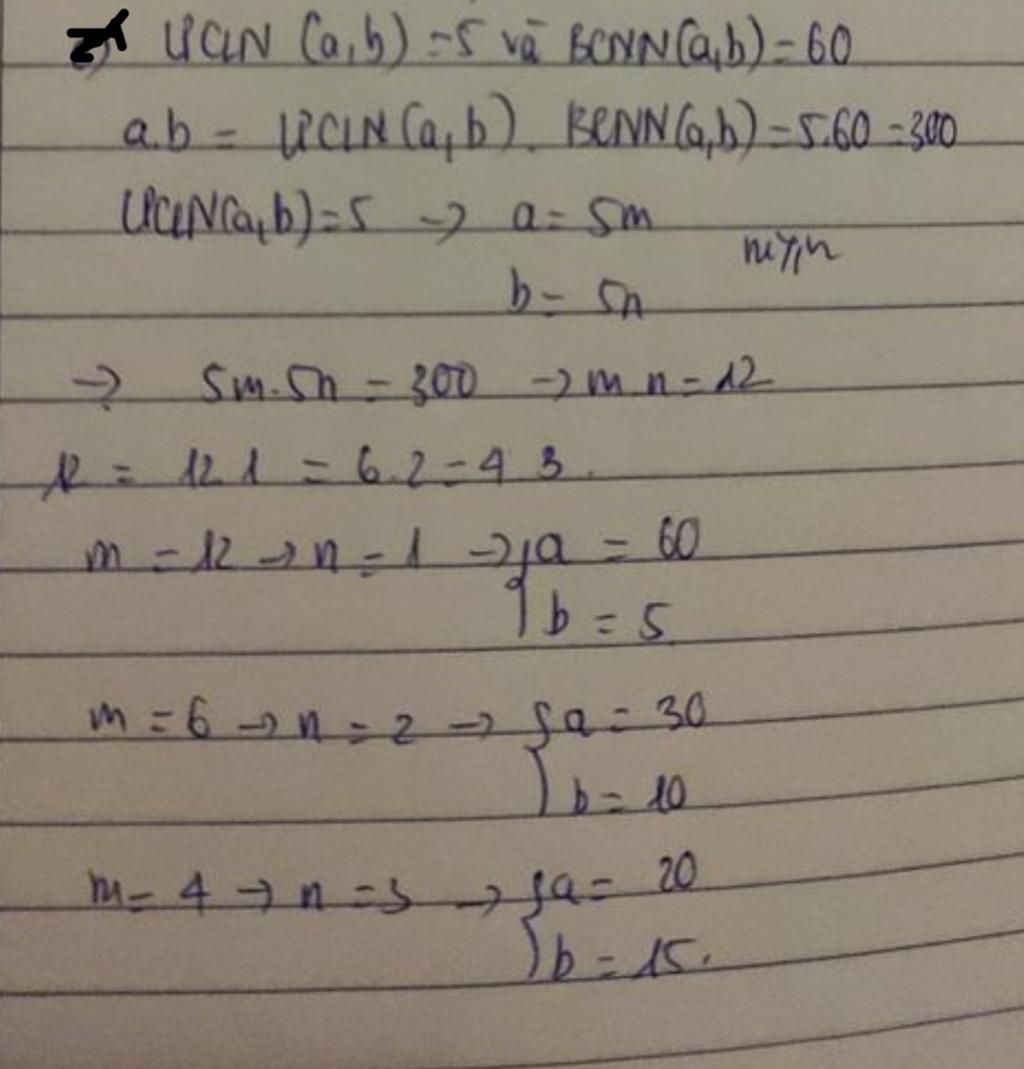 ƯCLN (a,b) = 5 và BCNN(a,b) = 60
a.b = ƯCLN(a,b). BCNN(a,b) = 5.60 = 300
ƯCLN(a,b) = 5 → a = 5m
m>,n
b = 5n
→ 5m.5n = 300 → m n = 12
12 = 12.1 = 6.2 = 4 3.
m = 12 → n = 1 → { a = 60
b = 5
m = 6 → n = 2 → { a = 30
b = 10
m = 4 → n = 3 → { a = 20
b = 15.